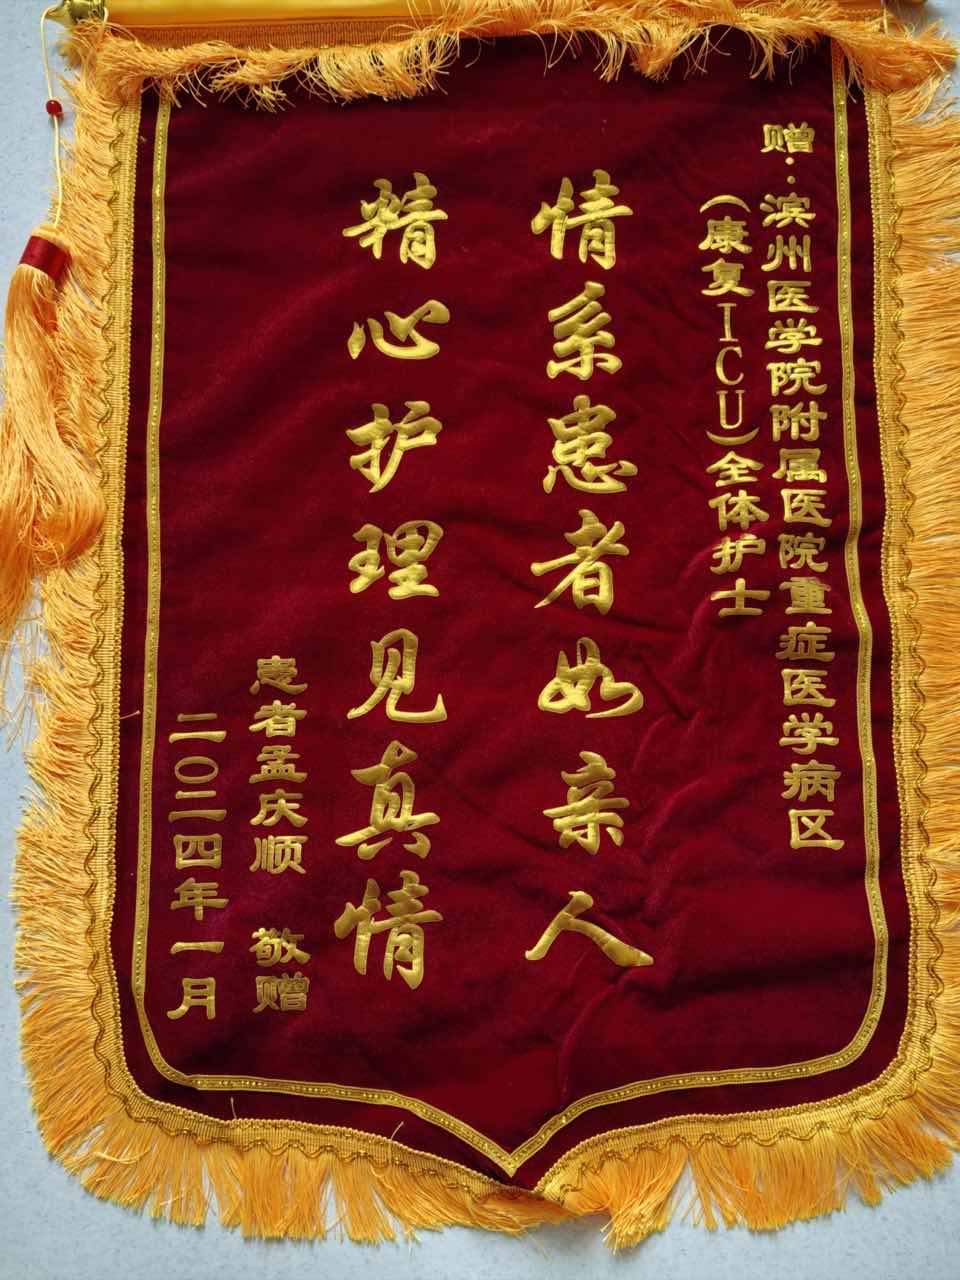 赠：滨州医学院附属医院重症医学病区
（康复ICU）全体护士
情系患者如亲人
精心护理见真情
患者孟庆顺 敬赠
二〇二四年一月